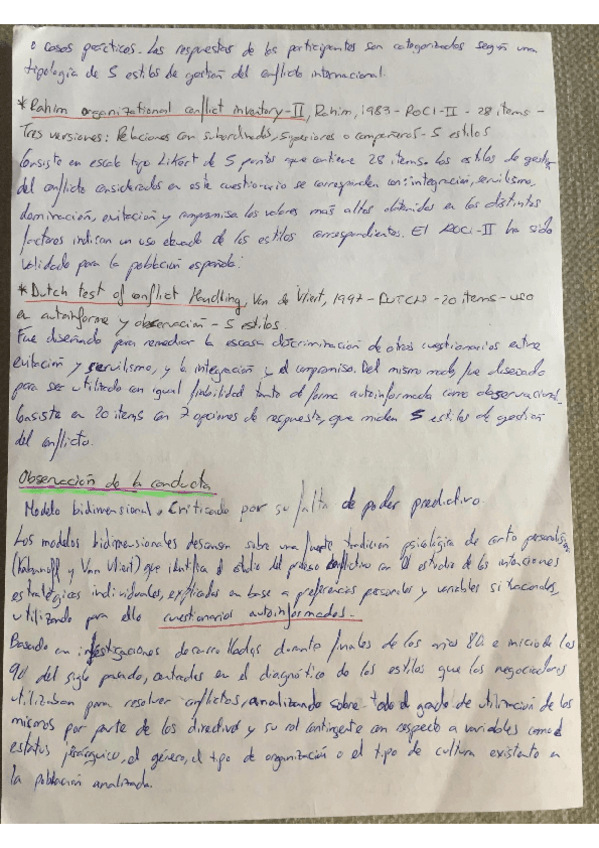 o casos prácticos. Las respuestas de los participantes son categorizadas según una
tipología de 5 estilos de gestión del conflicto internacional.
*Rahim organizational conflict inventory-II, Rahim, 1983 - ROCI-II - 28 items -
Tres versiones: Relaciones con subordinados, superiores o compañeros - 5 estilos
Consiste en escala tipo Likert de 5 puntos que contiene 28 items. Los estilos de gestión
del conflicto considerados en este cuestionario se corresponden con: integración, servilismo,
dominación, evitación y compromiso. Los valores más altos obtenidos en los distintos
factores indican un uso elevado de los estilos correspondientes. El ROCI-II ha sido
validado para la población española.
*Dutch test of conflict Handling, Van de Vliert, 1997 - DUTCH - 20 items - uso
en autoinforme y observación - 5 estilos
Fue diseñado para remediar la escasa discriminación de otros cuestionarios entre
evitación y servilismo, y la integración y el compromiso. Del mismo modo, fue diseñado
para ser utilizado con igual fiabilidad tanto de forma autoinformada como observacional.
Consiste en 20 items con 7 opciones de respuesta, que miden 5 estilos de gestión
del conflicto.
Observación de la conducta
Modelo bidimensional. Criticado por su falta de poder predictivo.
Los modelos bidimensionales descansan sobre una fuerte tradición psicológica de corte personalista
(Kabanoff y Van Vliert) que identifica el estudio del proceso conflictivo con el estudio de las intenciones
estratégicas individuales, explicadas en base a preferencias personales y variables situacionales,
utilizando para ello cuestionarios autoinformados.
Basado en investigaciones desarrolladas durante finales de los años 80 e inicio de los
90 del siglo pasado, centradas en el diagnóstico de los estilos que los negociadores
utilizaban para resolver conflictos, analizando sobre todo el grado de utilización de los
mismos por parte de los directivos y su rol contingente con respecto a variables como el
estatus jerárquico, el género, el tipo de organización o el tipo de cultura existente en
la población analizada.